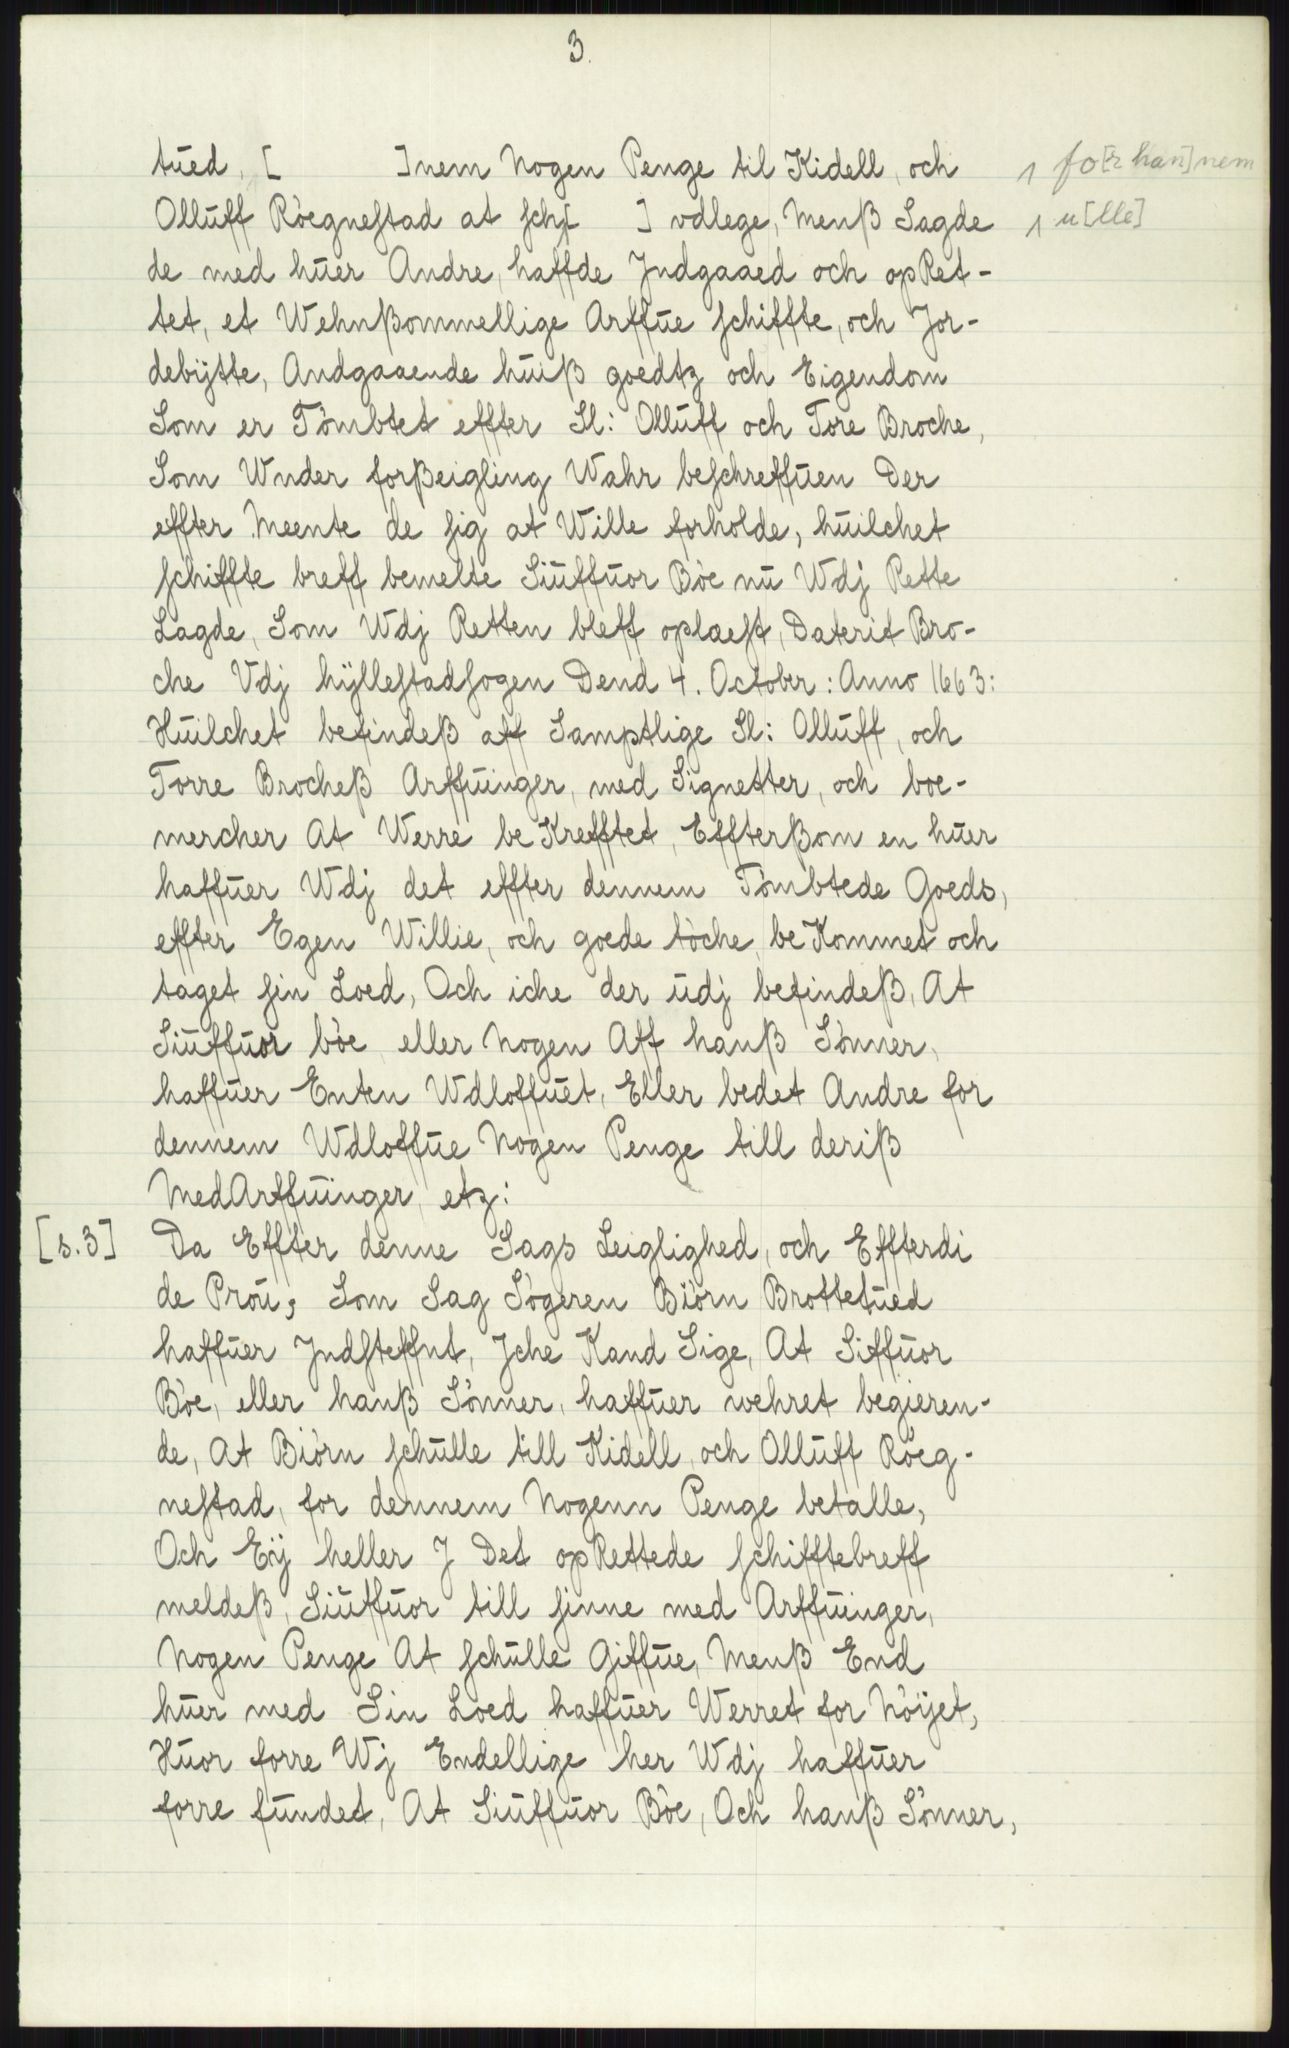 3.
tued, [ ]nem Nogen Penge til Kidell, och 1 fo[r han]nem
Olluff Röegnestad at sch[ ] vdlege, Menß Sagde 1 u[lle]
de med huer Andre, haffde Jndgaaed och opRet-
tet, et Wehnßommellige Arffue schiffte, och Jor-
debÿtte, Andgaaende huiß goedtz och Eigendom
Som er Tömbtet effter Sl: Olluff och Tore Broche,
Som Wnder forßeigling Wahr beschreffuen Der
effter Meente de sig at Wille forholde, huilchet
schiffte breff bemelte Siuffuor Böe nu Wdj Rette
Lagde, Som Wdj Retten bleff oplaest, Daterit Bro-
che Vdj hÿllestadsogen Dend 4. October: Anno 1663:
Huilchet befindeß aff Samptlige Sl: Olluff, och
Torre Brocheß Arffuinger, med Signetter, och boe-
mercher At Werre be Krefftet, Effterßom en huer
haffuer Wdj det effter dennem Tömbtede Goeds,
effter Egen Willie, och goede töche, be Kommet och
taget sin Loed, Och iche der udj befindeß, At
Siuffuor böe, eller Nogen Aff hanß Sönner,
haffuer Enten Wdloffuet, Eller bedet Andre for
dennem Wdloffue Nogen Penge till deriß
MedArffuinger, etz:
[s.3] Da Effter denne Sags Leiglighed, och Effterdi
de Prou, Som Sag Sögeren Biörn Brottetued
haffuer Jndsteffnt, Jche Kand Sige, At Siffuor
Böe, eller hanß Sönner, haffuer wehret begieren-
de, At Biörn schulle till Kidell, och Olluff Röeg-
nestad, for dennem Nogenn Penge betalle,
Och Eÿ heller J Det opRettede schifftebreff
meldeß, Siuffuor till sinne med Arffuinger,
Nogen Penge At schulle Giffue, Menß End
huer med Sin Loed haffuer Werret for Nöÿet,
Huor forre Wj Endellige her Wdj haffuer
forre fundet, At Siuffuor Böe, Och hanß Sönner,